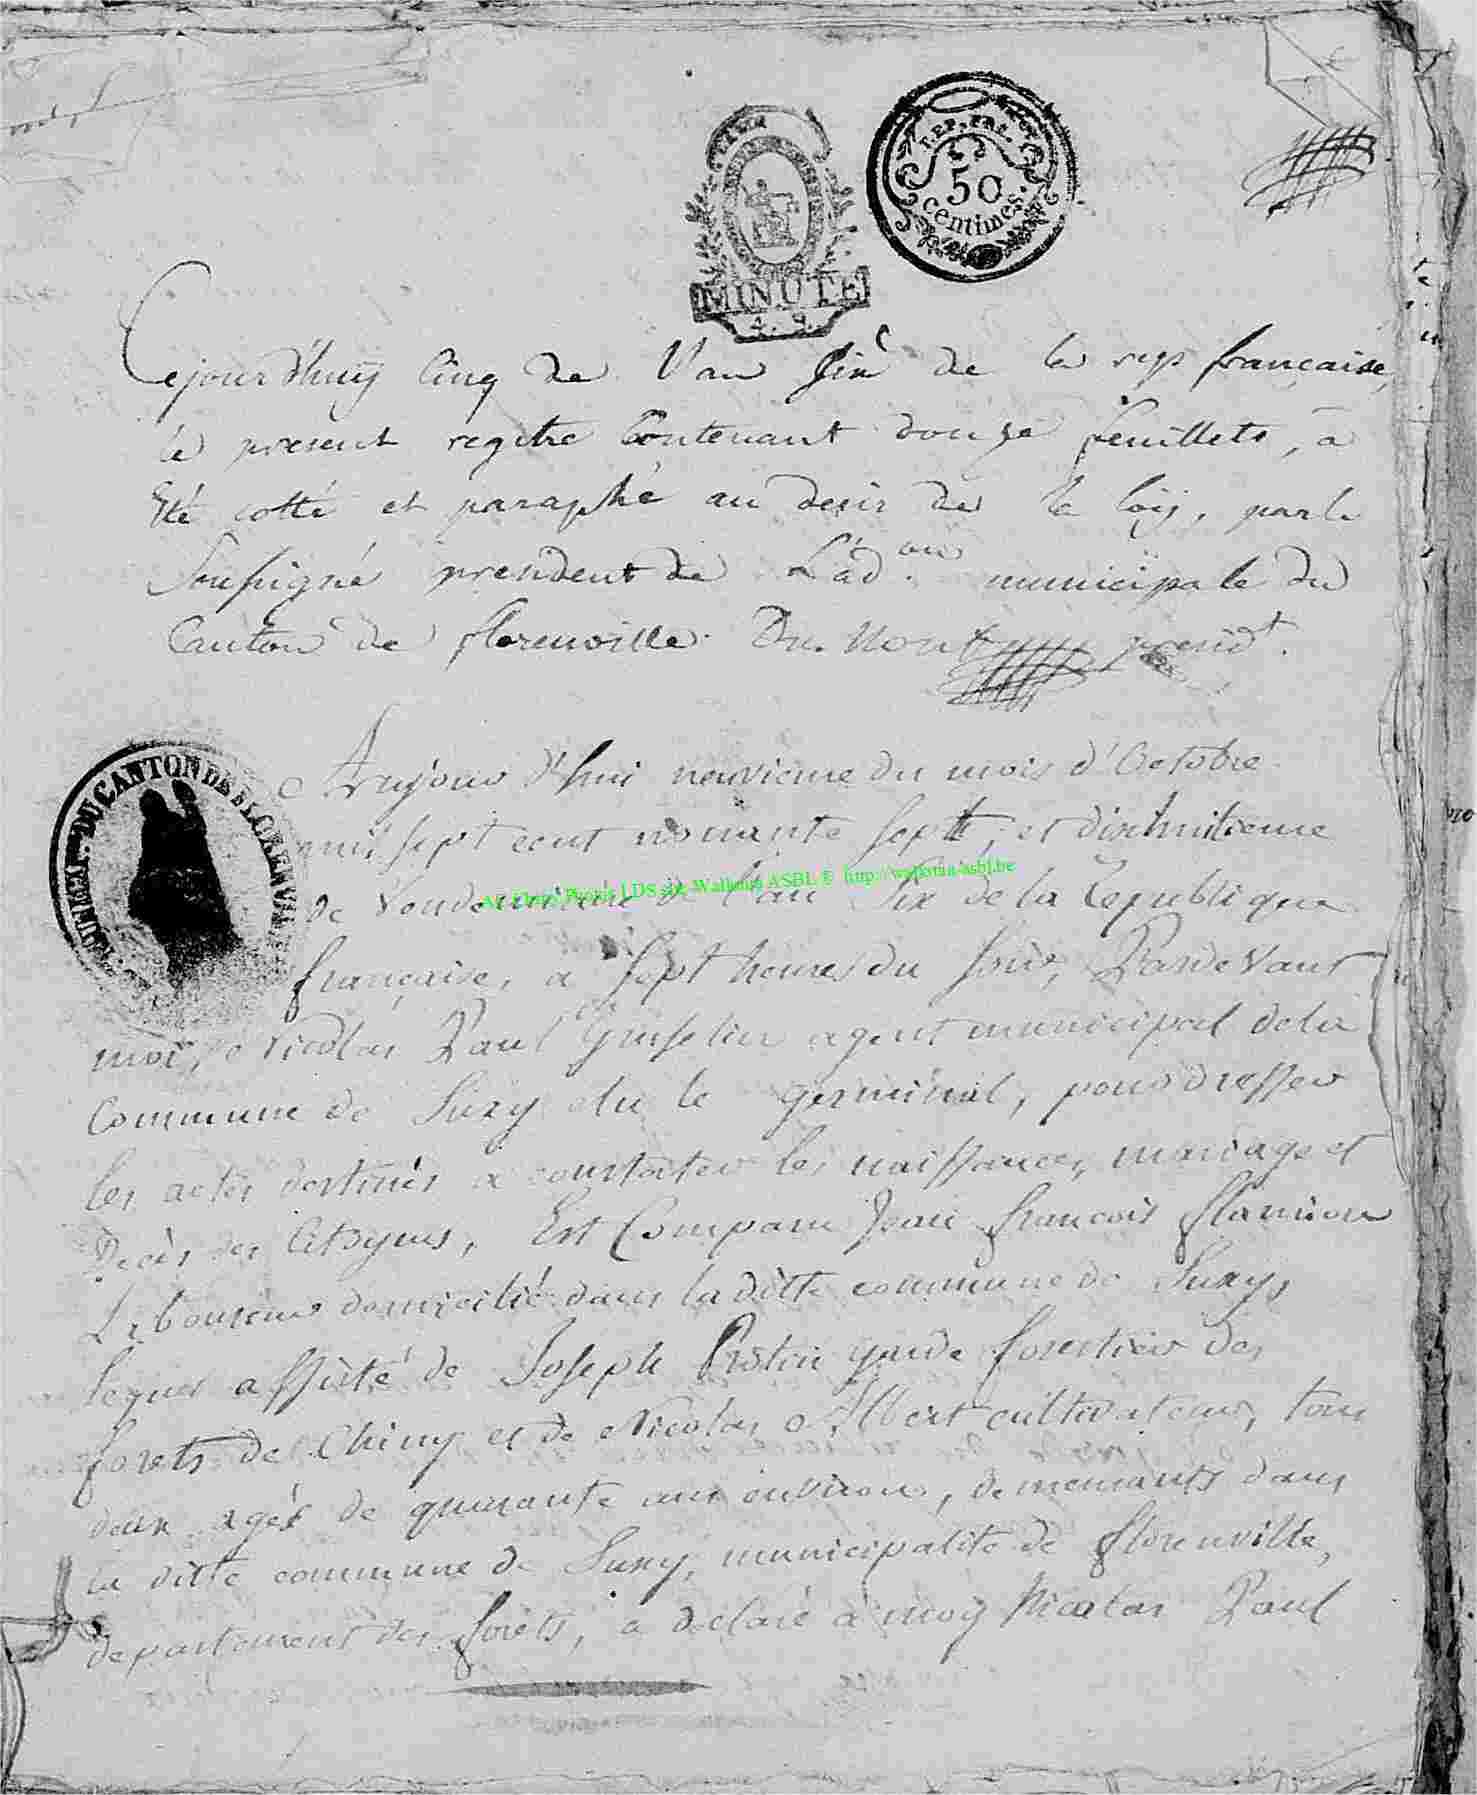 REP. FRA.
50
centimes.
MINUTE
Cejourd'huy Cinq de l'an six de la rep française,
le present regitre contenant douze feuillets, a
Eté cotté et paraphé au desir de la loy, par le
Soussigné president de L'ad.on municipale du
Canton de florenville. president.
DU CANTON DE FLORENVILLE
Aujourd'hui neuvieme du mois d'Octobre
mil sept cent nonante sept, et dixhuitieme
de Vendemiaire de l'an Six de la Republique
http://wallonia-asbl.be
française, à Sept heures du soir, Pardevant
moi, Nicolas Paul agent municipal de la
Commune de Suxy elu le germinal, pour dresser
les actes destinés a constater les naissances, mariage et
Decès des Citoyens, Est Comparu Jean françois flamion
Laboureur domicilié dans la ditte commune de Suxy,
lequel assisté de Joseph garde forestier des
forets de Chiny et de Nicolas Albert cultivateur, tous
deux agés de quarante ans environs, demeurants dans
la ditte commune de Suxy, municipalité de florenville,
departement des forêts, a declaré à moy Nicolas Paul